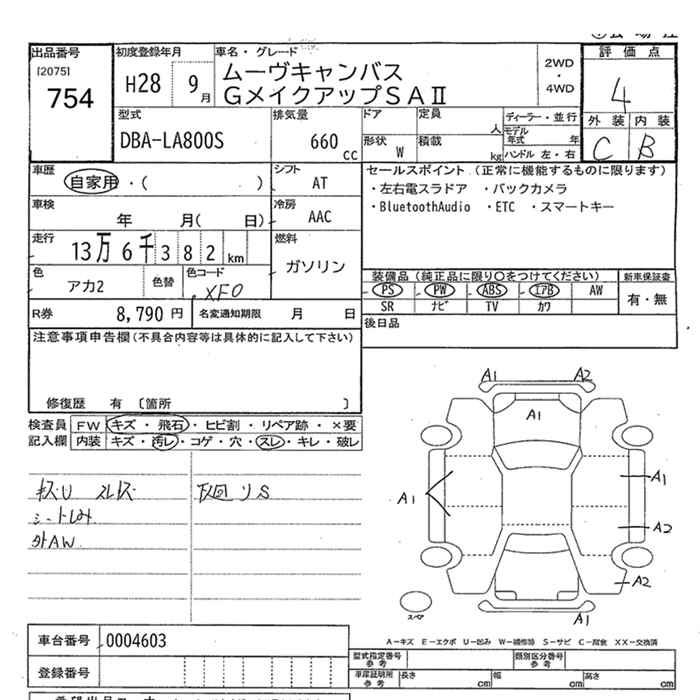 出品番号 初度登録年月 車名・グレード 評価点
[2075]
754 H28 9月 ムーヴキャンバス 2WD
GメイクアップSAⅡ ・ 4
4WD
型式 排気量 ドア 定員 人 ディーラー・並行 外装 内装
DBA-LA800S 660cc モデル年式 年
形状 W 積載 kg ハンドル 左・右 C B
車歴 自家用・( ) シフト AT セールスポイント (正常に機能するものに限ります)
・左右電スラドア ・バックカメラ
車検 年 月( 日) 冷房 AAC ・BluetoothAudio ・ETC ・スマートキー
走行 13万6千382km 燃料 ガソリン
色 アカ2 色替 色コード XF0 装備品 (純正品に限り○をつけてください) 新車保証書
PS PW ABS エアB AW 有・無
SR ナビ TV カワ
R券 8,790円 名変通知期限 月 日 後日品
注意事項申告欄(不具合内容等は具体的に記入して下さい)
修復歴 有 〔箇所 〕
検査員 FW キズ・飛石・ヒビ割・リペア跡・×要
記入欄 内装 キズ・汚レ・コゲ・穴・スレ・キレ・破レ
キズU スレズ 下廻リS
シートしみ
外AW
A1 A2
A1
A1 A1
A2
A2
A1
スペア
A-キズ E-エクボ U-凹み W-補修跡 S-サビ C-腐食 XX-交換済
車台番号 0004603
型式指定番号 参考 類別区分番号 参考
登録番号 車庫証明所 参考 長さ cm 幅 cm 高さ cm